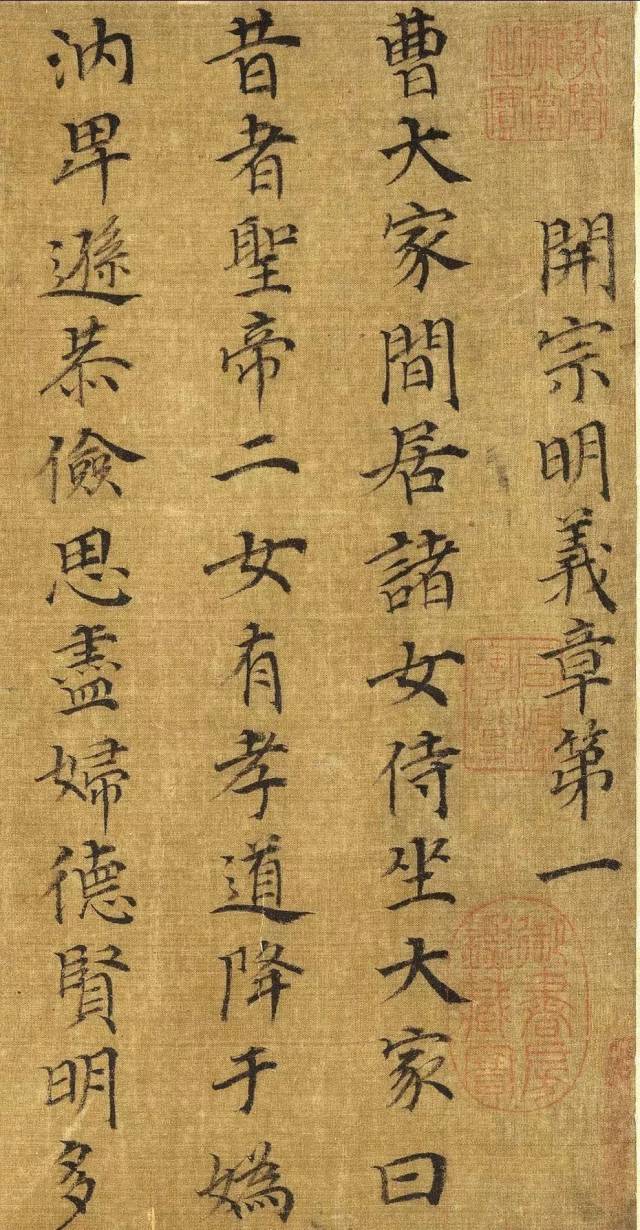 開宗明義章第一
曹大家間居諸女侍坐大家曰
昔者聖帝二女有孝道降于嬀
汭卑遜恭儉思盡婦德賢明多
御書房鑒藏寶